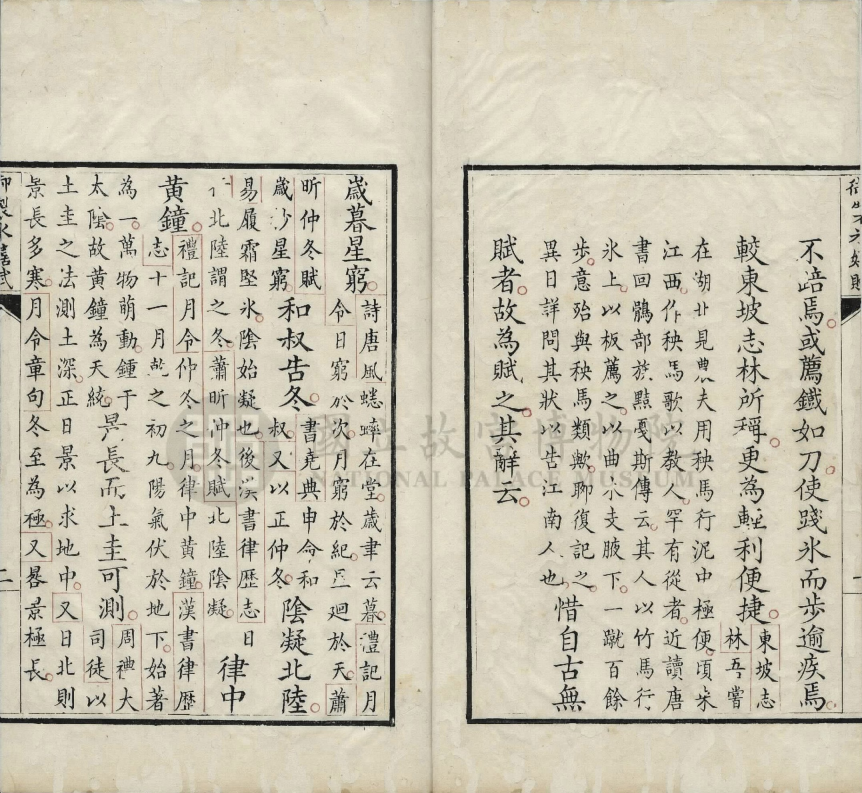 不踣焉。或薦鐵如刀。使踐氷而步逾疾焉。
較東坡志林所稱。更為輕利便捷。
東坡志
林。吾嘗
在湖北見農夫用秧馬行泥中極便。頃来
江西。作秧馬歌以教人。罕有從者。近讀唐
書回鶻部族黠戛斯傳云。其人以竹馬行
氷上。以板薦之。以曲木支腋下。一蹴百餘
步。意殆與秧馬類歟。聊復記之。
異日詳問其狀。以告江南人也。
惜自古無
賦者。故為賦之。其辭云。
歲暮星窮。
詩唐風蟋蟀在堂。歲聿云暮。禮記月
令日窮於次。月窮於紀。星廻於天。蕭
昕仲冬賦
歲沙星窮。
和叔告冬。
書堯典申命和
叔。又以正仲冬。
陰凝北陸。
易履霜堅氷。陰始凝也。後漢書律歷志日
行北陸謂之冬。蕭昕仲冬賦北陸陰凝。
律中
黃鐘。
禮記月令仲冬之月。律中黃鐘。漢書律歷
志十一月乾之初九。陽氣伏於地下。始著
為一。萬物萌動。鍾于
太陰。故黃鐘為天統。
晷長而土圭可測。
周禮大
司徒以
土圭之法測土深。正日景以求地中。又日北則
景長多寒。月令章句冬至為極。又晷景極長。
二
國立故宮博物院
NATIONAL PALACE MUSEUM